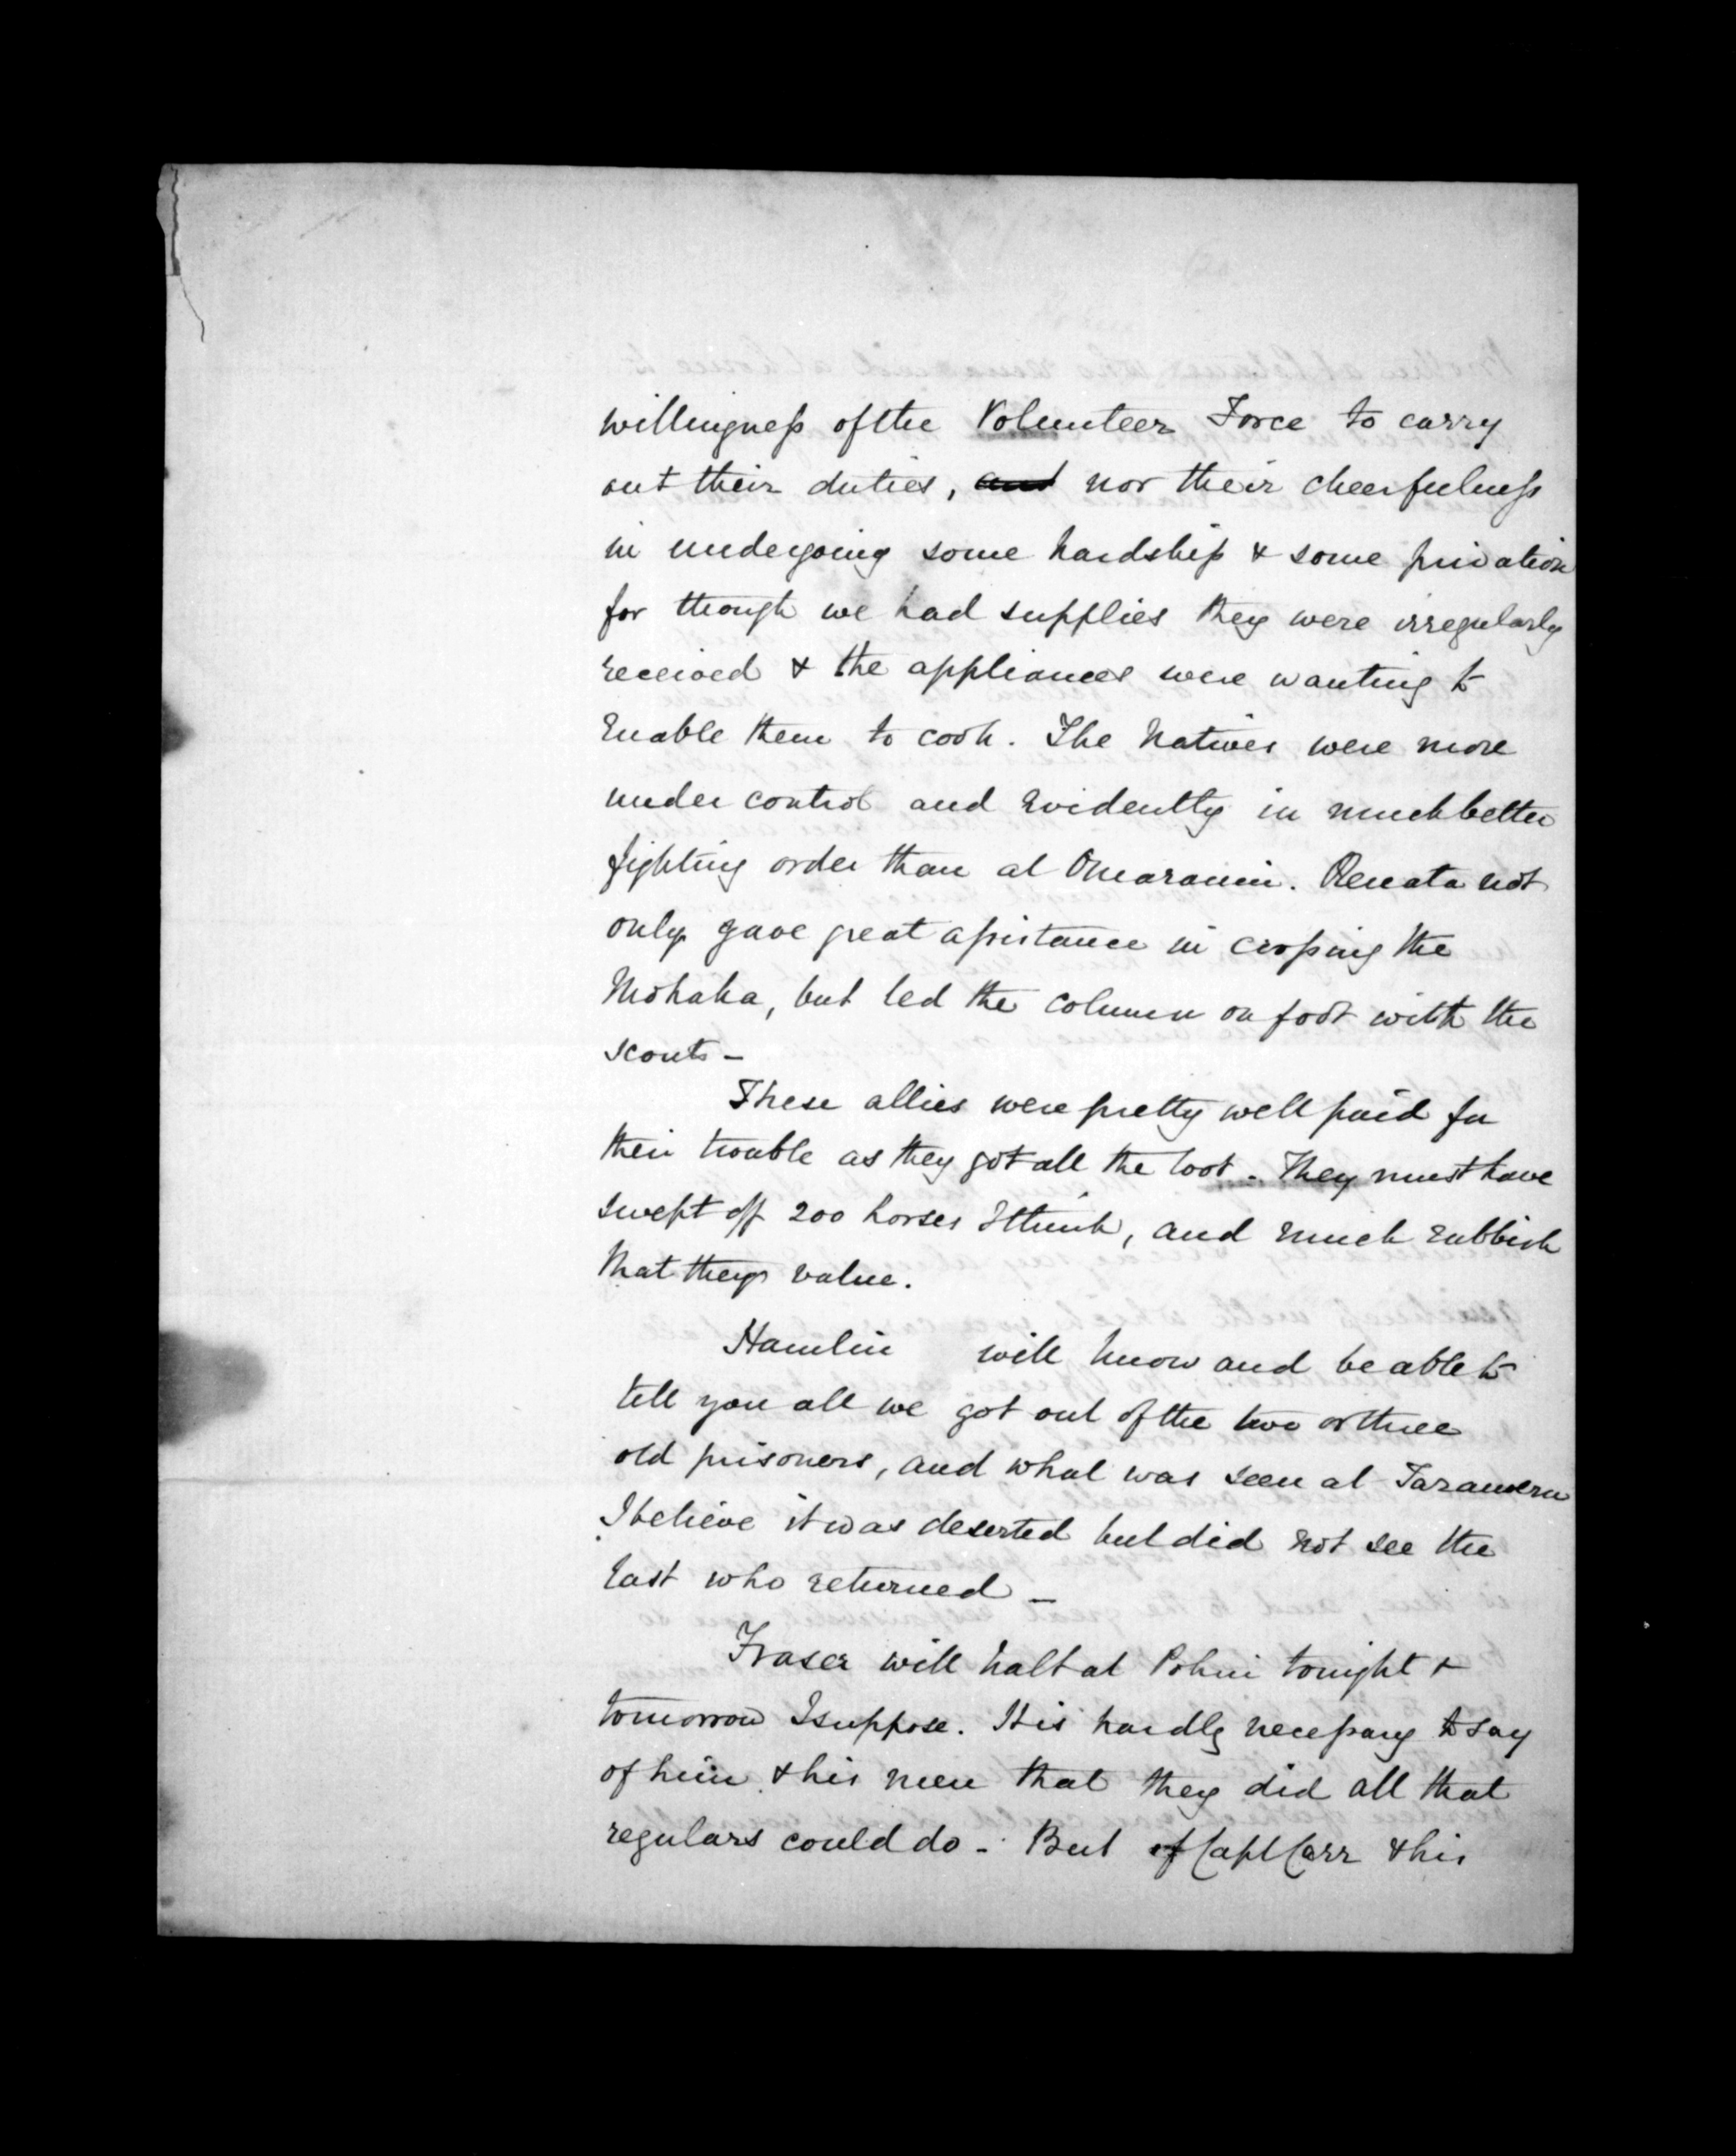 willingness of the Volunteer Force to carry
out their duties, and nor their cheerfulness
in undergoing some hardship & some privation
for though we had supplies they were irregularly
received & the appliances were wanting to
enable them to cook. The Natives were more
under control and evidently in much better
fighting order than at Omaranui. Renata not
only gave great assistance in crossing the
Mohaka, but led the column on foot with the
scouts -
These allies were pretty well paid for
their trouble as they got all the loot. They must have
swept off 200 horses I think, and much rubbish
that they value.
Hamlin will know and be able to
tell you all we got out of the two or three
old prisoners, and what was seen at Tarawera
I believe it was deserted but did not see the
last who returned -
Fraser will halt at Pohui tonight &
tomorrow I suppose. It is hardly necessary to say
of him & his men that they did all that
regulars could do - But of Capt Carr & his